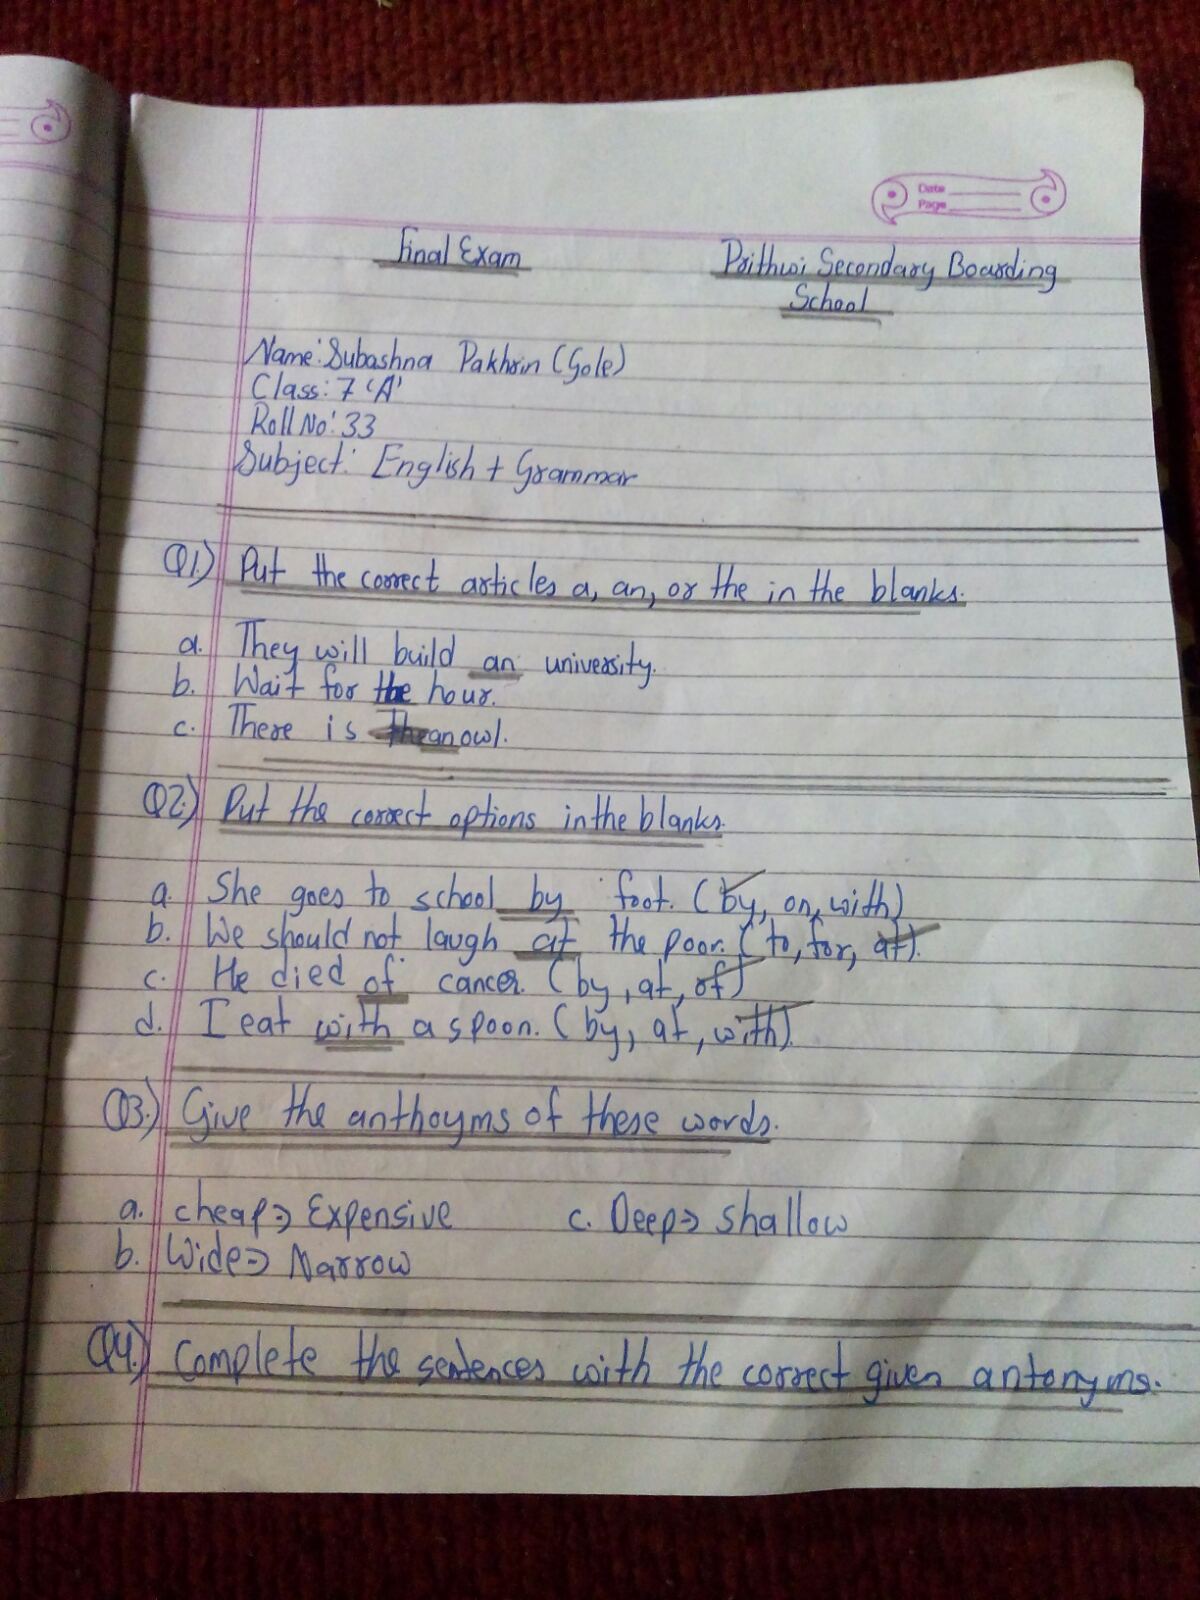 Date
Page
Final Exam
Prithwi Secondary Boarding
School
Name: Subashna Pakhrin (Gole)
Class: 7 'A'
Roll No: 33
Subject: English + Grammar
Q1.) Put the correct articles a, an, or the in the blanks.
a. They will build an university.
b. Wait for the hour.
c. There is an owl.
Q2.) Put the correct options in the blanks.
a. She goes to school by foot. (by, on, with)
b. We should not laugh at the poor. (to, for, at).
c. He died of cancer. (by, at, of)
d. I eat with a spoon. (by, at, with).
Q3.) Give the anthoyms of these words.
a. cheap => Expensive c. Deep => shallow
b. Wide => Narrow
Q4.) Complete the sentences with the correct given antonyms.